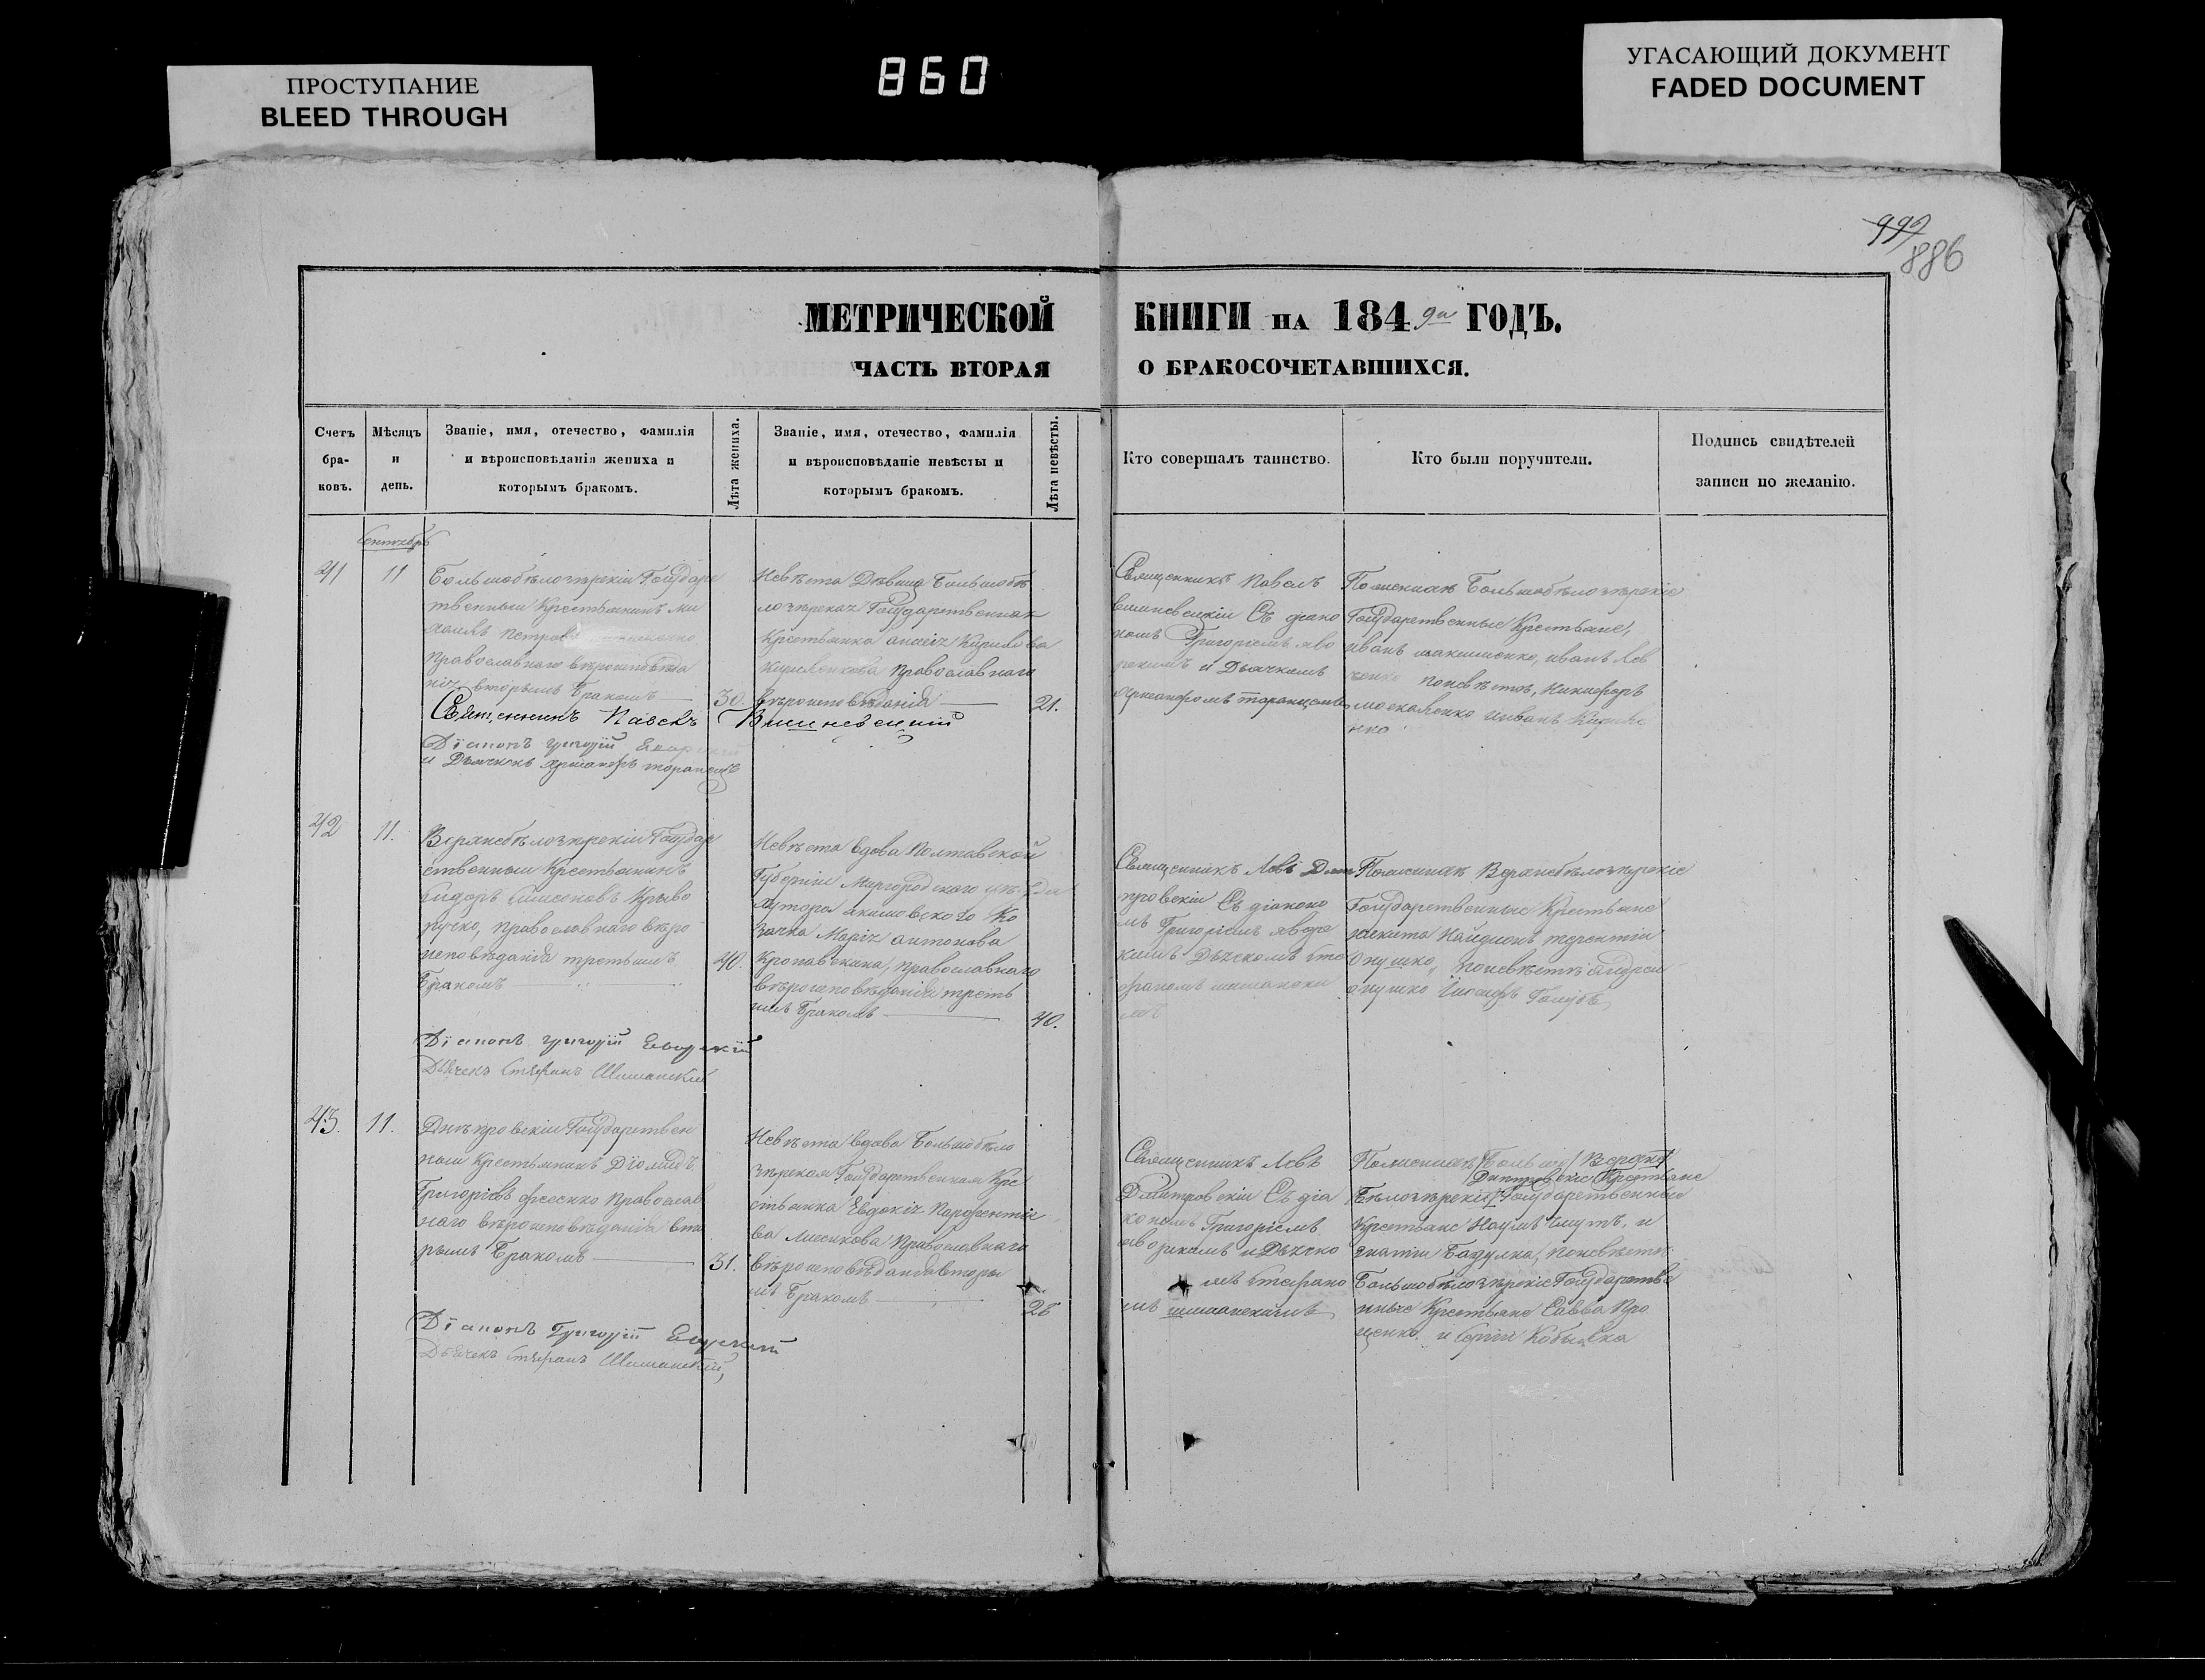 ПРОСТУПАНИЕ
BLEED THROUGH
860
УГАСАЮЩИЙ ДОКУМЕНТ
FADED DOCUMENT
992
886
МЕТРИЧЕСКОЙ КНИГИ НА 1849го ГОДЪ.
ЧАСТЬ ВТОРАЯ О БРАКОСОЧЕТАВШИХСЯ.
Счетъ бра-ковъ.
Мѣсяцъ и день.
Званіе, имя, отечество, фамилія
и вѣроисповѣданія жениха и
которымъ бракомъ.
Лѣта жениха.
Званіе, имя, отечество, фамилія
и вѣроисповѣданіе невѣсты и
которымъ бракомъ.
Лѣта невѣсты.
Кто совершалъ таинство.
Кто были поручители.
Подпись свидѣтелей
записи по желанію.
Сентябрь
41
11
Большебѣлозѣрскій Государс
твенный Крестьянинъ Ми
хаилъ Петровъ
православнаго вѣроисповѣда
нія вторымъ бракомъ
30.
Священникъ Павелъ Вишневскій
Діаконъ Григорій Яворскій
и Дьячокъ
Невѣста Дѣвица Большебѣ
лозѣрская Государственная
Крестьянка Кирилова
Кириленкова православнаго
вѣроисповѣданія
21.
Священникъ Павелъ
Вишневскій Съ діако
номъ Григоріемъ Яво
рскимъ и Дьячкомъ
По женихѣ Большебѣлозѣрскіе
Государственные Крестьяне,
иванъ максименко, иванъ Лев
ченко по невѣстѣ, Никифоръ
москаленко Иванъ Кириле
нко
42
11.
Верхнебѣлозѣрскій Государ
ственный Крестьянинъ
Сидоръ Симеоновъ Криво
ручко, православнаго вѣро
исповѣданія третьимъ
бракомъ
40.
Діаконъ Григорій Яворскій
Дьячекъ Стефанъ Шишанскій
Невѣста вдова Полтавской
Губерніи Миргородскаго уѣзда
Хутора Ко
зачка Марія антонова
православнаго
вѣроисповѣданія треть
имъ бракомъ
40.
Священникъ Левъ Дми
тровскій Съ діаконо
мъ Григоріемъ яворс
кимъ Дьячкомъ Сте
фаномъ шишански
мъ
По женихѣ Верхнебѣлозѣрскіе
Государственные Крестьяне
никита Найдіонъ терентій
Онушко, по невѣстѣ андрей
онушко Іосифъ Голубъ,
43.
11.
Днѣпровскій Государствен
ный Крестьянинъ Діомидъ
Григоріевъ Фесенко православ
наго вѣроисповѣданія вто
рымъ бракомъ
31.
Діаконъ Григорій Яворскій
Дьячекъ Стефанъ Шишанскій,
Невѣста вдова Большебѣло
зѣрская Государственная Кре
стьянка Евдокія Парфентіе
ва православнаго
вѣроисповѣданія вторы
мъ бракомъ
28
Священникъ Левъ
Дмитровскій Съ діа
кономъ Григоріемъ
яворскимъ и Дьячко
мъ Стефано
мъ шишанскимъ
По женихѣ Верхне
Днепровскіе Крестьяне
Бѣлозѣрскіе Государственные
Крестьяне Наумъ и
игнатій Бадулка, по невѣстѣ
Большебѣлозѣрскіе Государстве
нные Крестьяне Савва Про
ценко и Сергій Кобылка